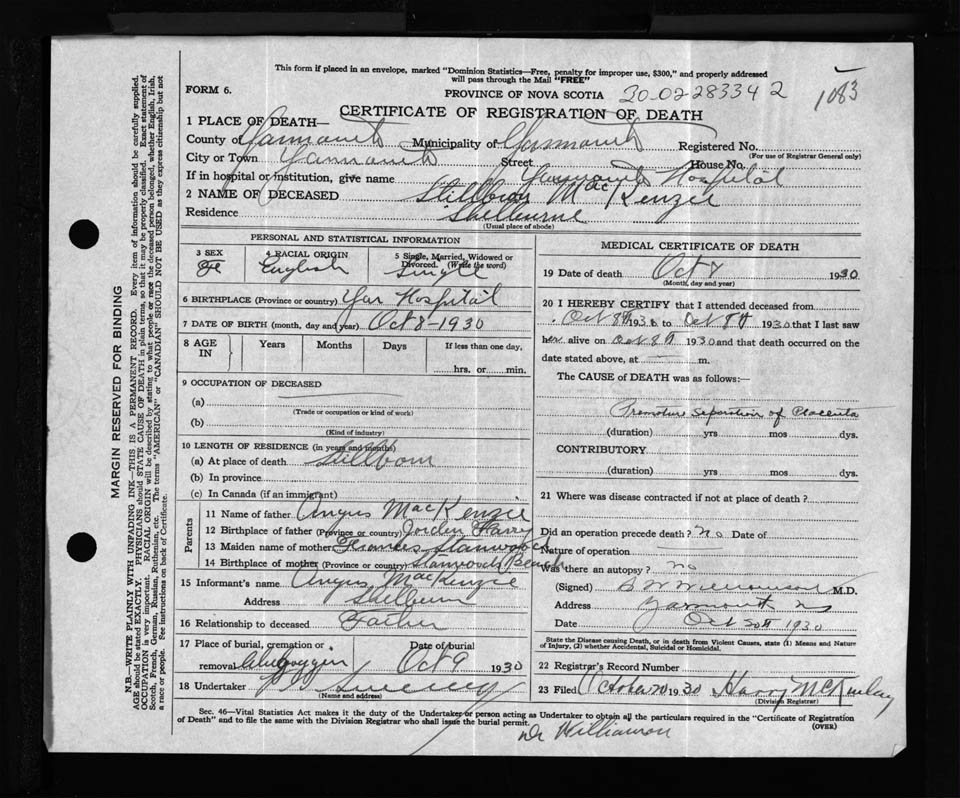 This form if placed in an envelope, marked "Dominion Statistics—Free, penalty for improper use, $300," and properly addressed
will pass through the Mail "FREE"
FORM 6.
PROVINCE OF NOVA SCOTIA 30-02-283342
1083
CERTIFICATE OF REGISTRATION OF DEATH
1 PLACE OF DEATH—
County of Yarmouth Municipality of Yarmouth Registered No.
(For use of Registrar General only)
City or Town Yarmouth Street House No.
If in hospital or institution, give name Yarmouth Hospital
2 NAME OF DECEASED Stillborn MacKenzie
Residence Shelburne
(Usual place of abode)
PERSONAL AND STATISTICAL INFORMATION
3 SEX Fe
4 RACIAL ORIGIN English
5 Single, Married, Widowed or Divorced. (Write the word) Single
6 BIRTHPLACE (Province or country) Yar Hospital
7 DATE OF BIRTH (month, day and year) Oct 8-1930
8 AGE IN Years Months Days If less than one day,
hrs. or min.
9 OCCUPATION OF DECEASED
(a)
(Trade or occupation or kind of work)
(b)
(Kind of industry)
10 LENGTH OF RESIDENCE (in years and months)
(a) At place of death Stillborn
(b) In province
(c) In Canada (if an immigrant)
Parents
11 Name of father Angus MacKenzie
12 Birthplace of father (Province or country) Jordan Ferry
13 Maiden name of mother Frances Stanwood
14 Birthplace of mother (Province or country) Beach
15 Informant's name Angus MacKenzie
Address Shelburn
16 Relationship to deceased Father
17 Place of burial, cremation or removal Cheboggin Date of burial Oct 9 1930
18 Undertaker Sweeney
(Name and address)
MEDICAL CERTIFICATE OF DEATH
19 Date of death Oct 7 1930
(Month, day and year)
20 I HEREBY CERTIFY that I attended deceased from
Oct 8th 1930 to Oct 8th 1930 that I last saw
her alive on Oct 8th 1930 and that death occurred on the
date stated above, at — m.
The CAUSE of DEATH was as follows:—
Premature Separation of Placenta
(duration) yrs mos dys.
CONTRIBUTORY
(duration) yrs mos dys.
21 Where was disease contracted if not at place of death?
Did an operation precede death? no Date of
Nature of operation
Was there an autopsy? no
(Signed) Williamson M.D.
Address Yarmouth NS
Date Oct 1930
State the Disease causing Death, or in death from Violent Causes, state (1) Means and Nature of Injury, (2) whether Accidental, Suicidal or Homicidal.
22 Registrar's Record Number
23 Filed October 1930 Harry McKinlay
(Division Registrar)
Sec. 46—Vital Statistics Act makes it the duty of the Undertaker or person acting as Undertaker to obtain all the particulars required in the "Certificate of Registration
of Death" and to file the same with the Division Registrar who shall issue the burial permit. (OVER)
Dr Williamson
MARGIN RESERVED FOR BINDING
N.B.—WRITE PLAINLY WITH UNFADING INK—THIS IS A PERMANENT RECORD. Every item of information should be carefully supplied.
AGE should be stated EXACTLY. PHYSICIANS should STATE CAUSE OF DEATH in plain terms, so that it may be properly classified. Exact statement of
OCCUPATION is very important. RACIAL ORIGIN will be described by stating to what people or race the deceased person belonged, whether English, Irish,
Scotch, French, German, Russian, Ruthenian, etc. The terms "AMERICAN" or "CANADIAN" SHOULD NOT BE USED as they express citizenship but not
a race or people. See instructions on back of Certificate.